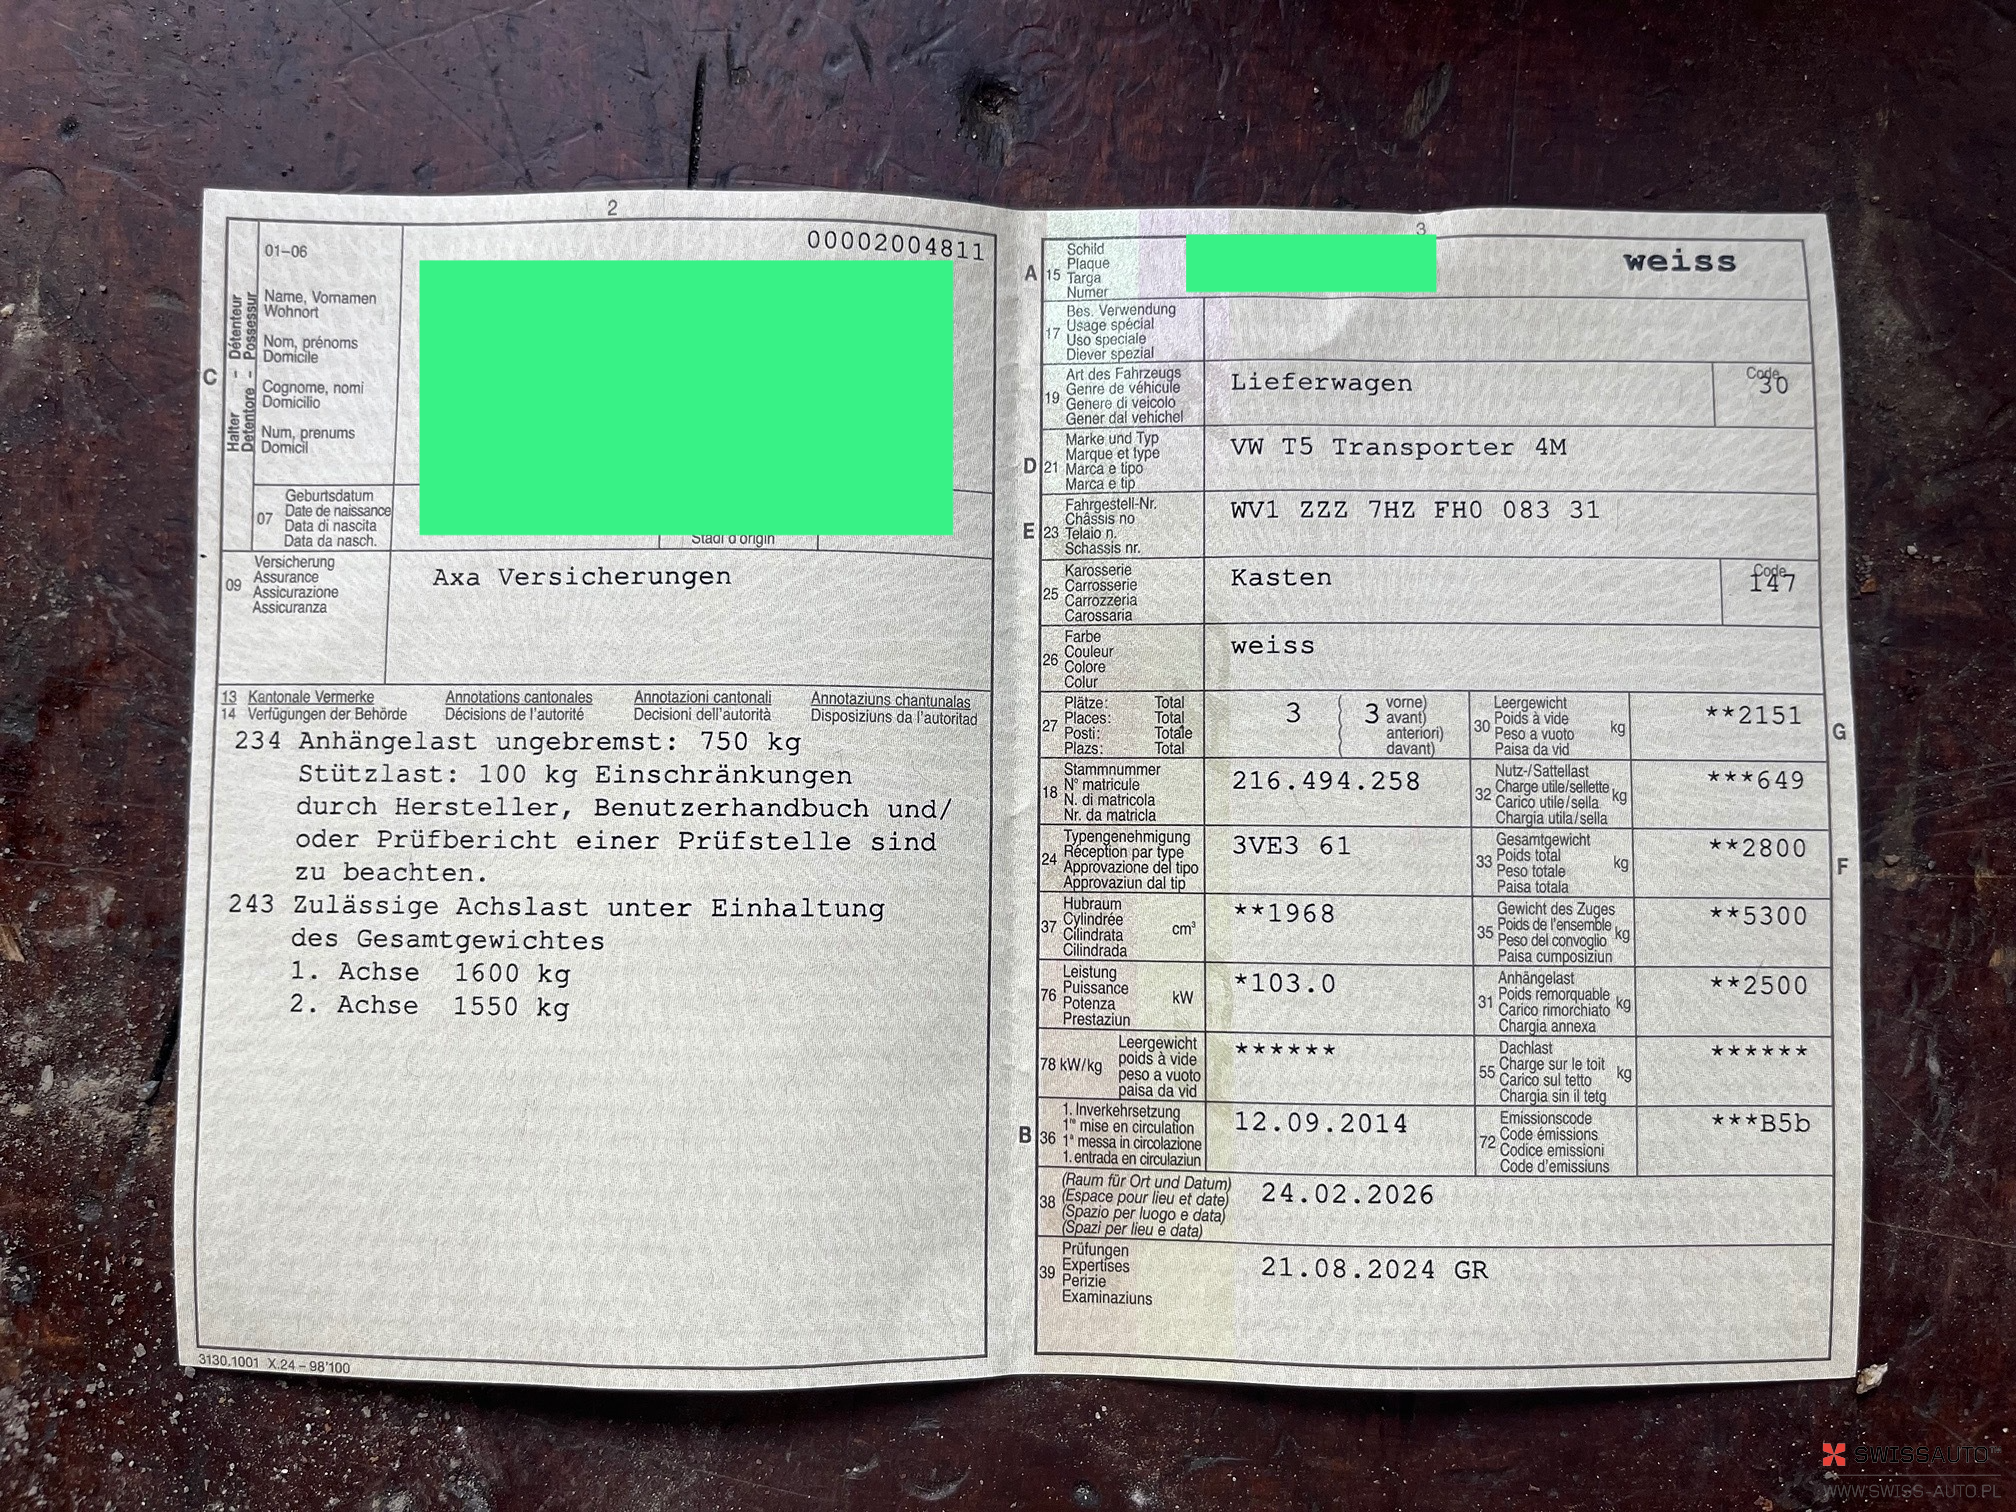 2
00002004811
01–06
Name, Vornamen
Wohnort
Nom, prénoms
Domicile
Cognome, nomi
Domicilio
Num, prenums
Domicil
C
Halter - Détenteur
Detentore - Possessur
07
Geburtsdatum
Date de naissance
Data di nascita
Data da nasch.
Stadi d'origin
09
Versicherung
Assurance
Assicurazione
Assicuranza
Axa Versicherungen
13 Kantonale Vermerke Annotations cantonales Annotazioni cantonali Annotaziuns chantunalas
14 Verfügungen der Behörde Décisions de l'autorité Decisioni dell'autorità Disposiziuns da l'autoritad
234 Anhängelast ungebremst: 750 kg
Stützlast: 100 kg Einschränkungen
durch Hersteller, Benutzerhandbuch und/
oder Prüfbericht einer Prüfstelle sind
zu beachten.
243 Zulässige Achslast unter Einhaltung
des Gesamtgewichtes
1. Achse 1600 kg
2. Achse 1550 kg
3130.1001 X.24 – 98'100
3
A 15
Schild
Plaque
Targa
Numer
weiss
17
Bes. Verwendung
Usage spécial
Uso speciale
Diever spezial
19
Art des Fahrzeugs
Genre de véhicule
Genere di veicolo
Gener dal vehichel
Lieferwagen
Code
30
D 21
Marke und Typ
Marque et type
Marca e tipo
Marca e tip
VW T5 Transporter 4M
E 23
Fahrgestell-Nr.
Châssis no
Telaio n.
Schassis nr.
WV1 ZZZ 7HZ FH0 083 31
25
Karosserie
Carrosserie
Carrozzeria
Carossaria
Kasten
Code
147
26
Farbe
Couleur
Colore
Colur
weiss
27
Plätze: Total
Places: Total
Posti: Totale
Plazs: Total
3
3
( vorne)
( avant)
( anteriori)
( davant)
30
Leergewicht
Poids à vide
Peso a vuoto
Paisa da vid
kg
**2151
G
18
Stammnummer
N° matricule
N. di matricola
Nr. da matricla
216.494.258
32
Nutz-/Sattellast
Charge utile/sellette
Carico utile/sella
Chargia utila/sella
kg
***649
24
Typengenehmigung
Réception par type
Approvazione del tipo
Approvaziun dal tip
3VE3 61
33
Gesamtgewicht
Poids total
Peso totale
Paisa totala
kg
**2800
F
37
Hubraum
Cylindrée
Cilindrata
Cilindrada
cm³
**1968
35
Gewicht des Zuges
Poids de l'ensemble
Peso del convoglio
Paisa cumposiziun
kg
**5300
76
Leistung
Puissance
Potenza
Prestaziun
kW
*103.0
31
Anhängelast
Poids remorquable
Carico rimorchiato
Chargia annexa
kg
**2500
78 kW/kg
Leergewicht
poids à vide
peso a vuoto
paisa da vid
******
55
Dachlast
Charge sur le toit
Carico sul tetto
Chargia sin il tetg
kg
******
B 36
1. Inverkehrsetzung
1re mise en circulation
1a messa in circolazione
1. entrada en circulaziun
12.09.2014
72
Emissionscode
Code émissions
Codice emissioni
Code d'emissiuns
***B5b
38
(Raum für Ort und Datum)
(Espace pour lieu et date)
(Spazio per luogo e data)
(Spazi per lieu e data)
24.02.2026
39
Prüfungen
Expertises
Perizie
Examinaziuns
21.08.2024 GR
SWISSAUTO
WWW.SWISS-AUTO.PL